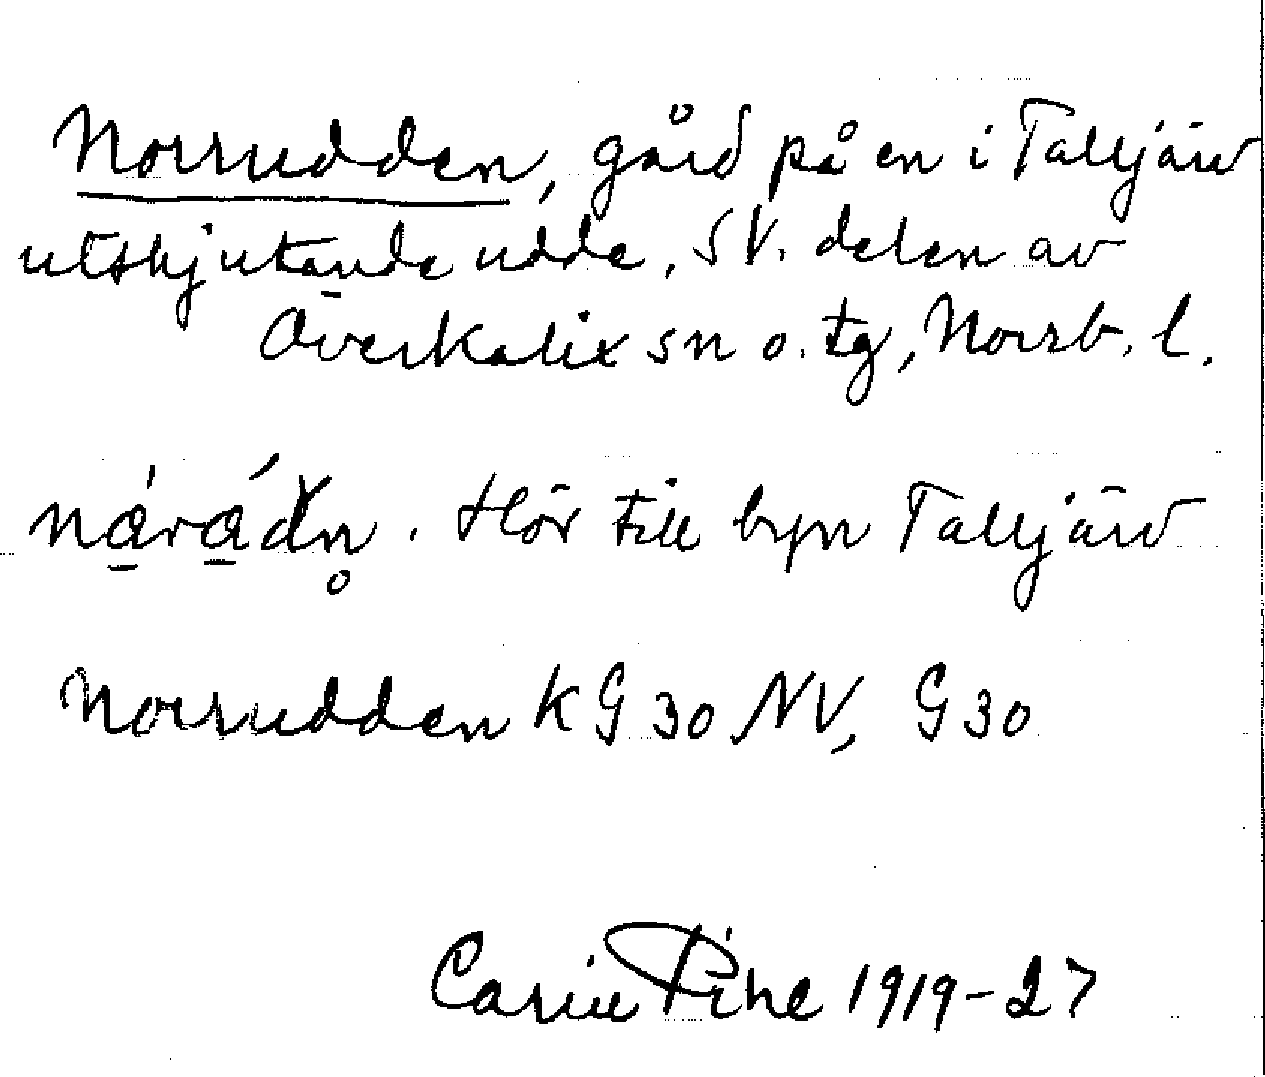 Norrudden, gård på en i Talljärv
utskjutande udde, SV. delen av
Överkalix sn o. tg, Norrb. l.
Hör till byn Talljärv
Norrudden K G 30 NV, G 30
Carin Pihl 1919-27